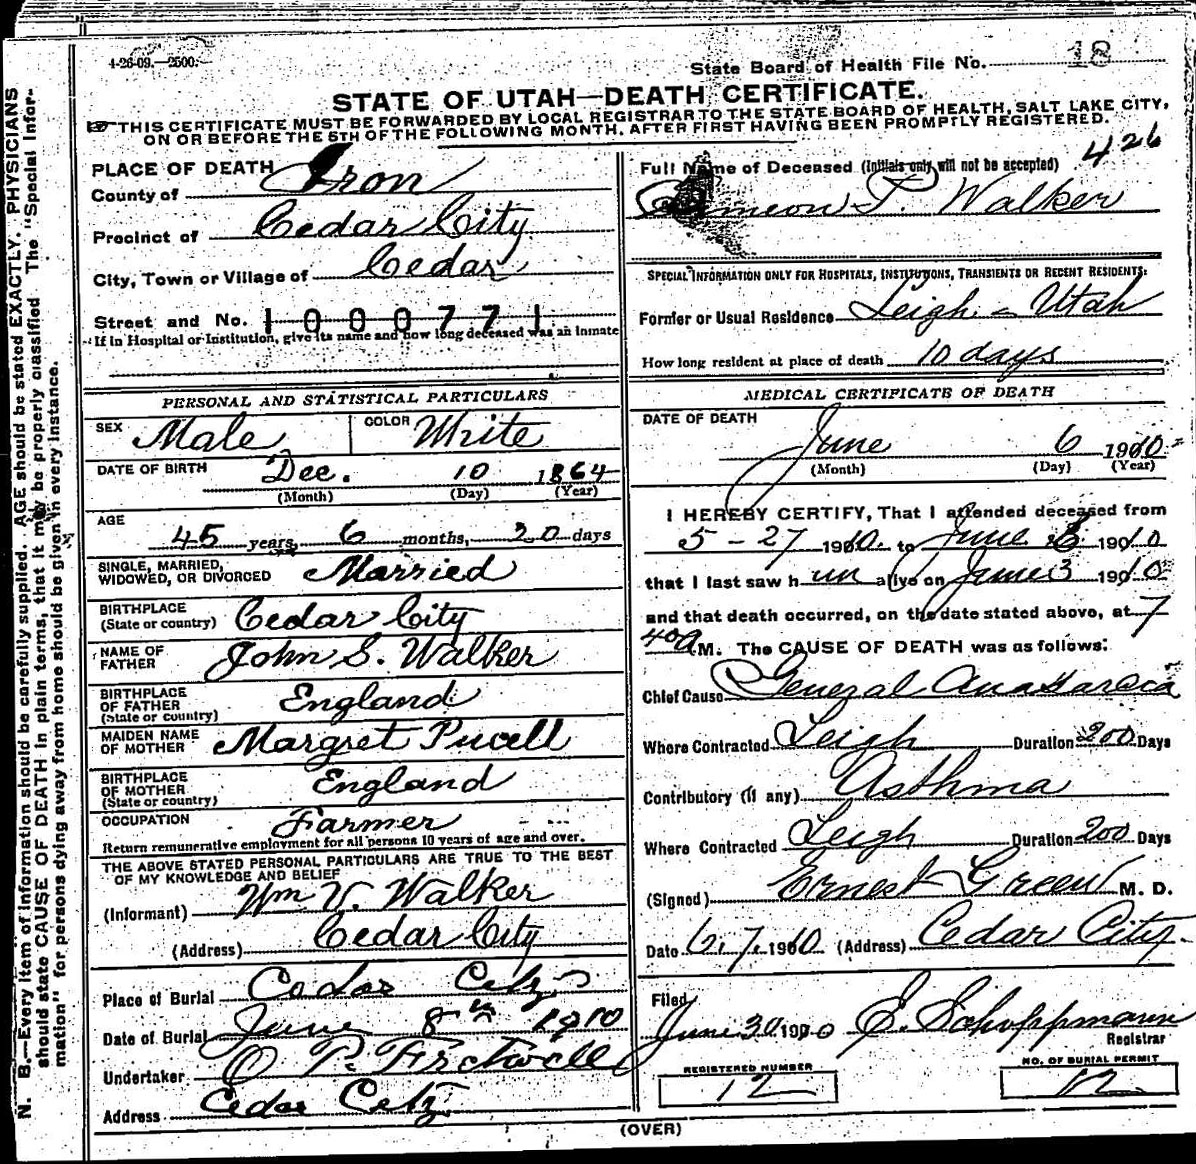 4-26-09.—2500.—
State Board of Health File No. 18
STATE OF UTAH—DEATH CERTIFICATE.
THIS CERTIFICATE MUST BE FORWARDED BY LOCAL REGISTRAR TO THE STATE BOARD OF HEALTH, SALT LAKE CITY,
ON OR BEFORE THE 5TH OF THE FOLLOWING MONTH, AFTER FIRST HAVING BEEN PROMPTLY REGISTERED.
PLACE OF DEATH
County of Iron
Precinct of Cedar City
City, Town or Village of Cedar
Street and No. 1000771
If in Hospital or Institution, give its name and how long deceased was an inmate
PERSONAL AND STATISTICAL PARTICULARS
SEX Male COLOR White
DATE OF BIRTH Dec. 10 1864
(Month) (Day) (Year)
AGE
45 years, 6 months, 20 days
SINGLE, MARRIED,
WIDOWED, OR DIVORCED Married
BIRTHPLACE
(State or country) Cedar City
NAME OF
FATHER John S. Walker
BIRTHPLACE
OF FATHER
(State or country) England
MAIDEN NAME
OF MOTHER Margret Pucell
BIRTHPLACE
OF MOTHER
(State or country) England
OCCUPATION Farmer
Return remunerative employment for all persons 10 years of age and over.
THE ABOVE STATED PERSONAL PARTICULARS ARE TRUE TO THE BEST
OF MY KNOWLEDGE AND BELIEF
(Informant) Wm V. Walker
(Address) Cedar City
Place of Burial Cedar City
Date of Burial June 8th 1910
Undertaker O P. Fretwell
Address Cedar City
426
Full Name of Deceased (Initials only will not be accepted)
T. Walker
SPECIAL INFORMATION ONLY FOR HOSPITALS, INSTITUTIONS, TRANSIENTS OR RECENT RESIDENTS:
Former or Usual Residence Leigh - Utah
How long resident at place of death 10 days
MEDICAL CERTIFICATE OF DEATH
DATE OF DEATH
June 6 1910
(Month) (Day) (Year)
I HEREBY CERTIFY, That I attended deceased from
5-27 1910. to June 1910
that I last saw him alive on June 3 1910
and that death occurred, on the date stated above, at 7
40 a M. The CAUSE OF DEATH was as follows:
Chief Cause General Anasarca
Where Contracted Leigh Duration 200 Days
Contributory (if any) Asthma
Where Contracted Leigh Duration 200 Days
(Signed) Ernest Green M. D.
Date 6. 7. 1910 (Address) Cedar City
Filed
June 30 1910 E. Schoppmann
Registrar
REGISTERED NUMBER
12
NO. OF BURIAL PERMIT
12
(OVER)
N. B.—Every item of information should be carefully supplied. AGE should be stated EXACTLY. PHYSICIANS
should state CAUSE OF DEATH in plain terms, that it may be properly classified. The "Special Infor-
mation" for persons dying away from home should be given in every instance.